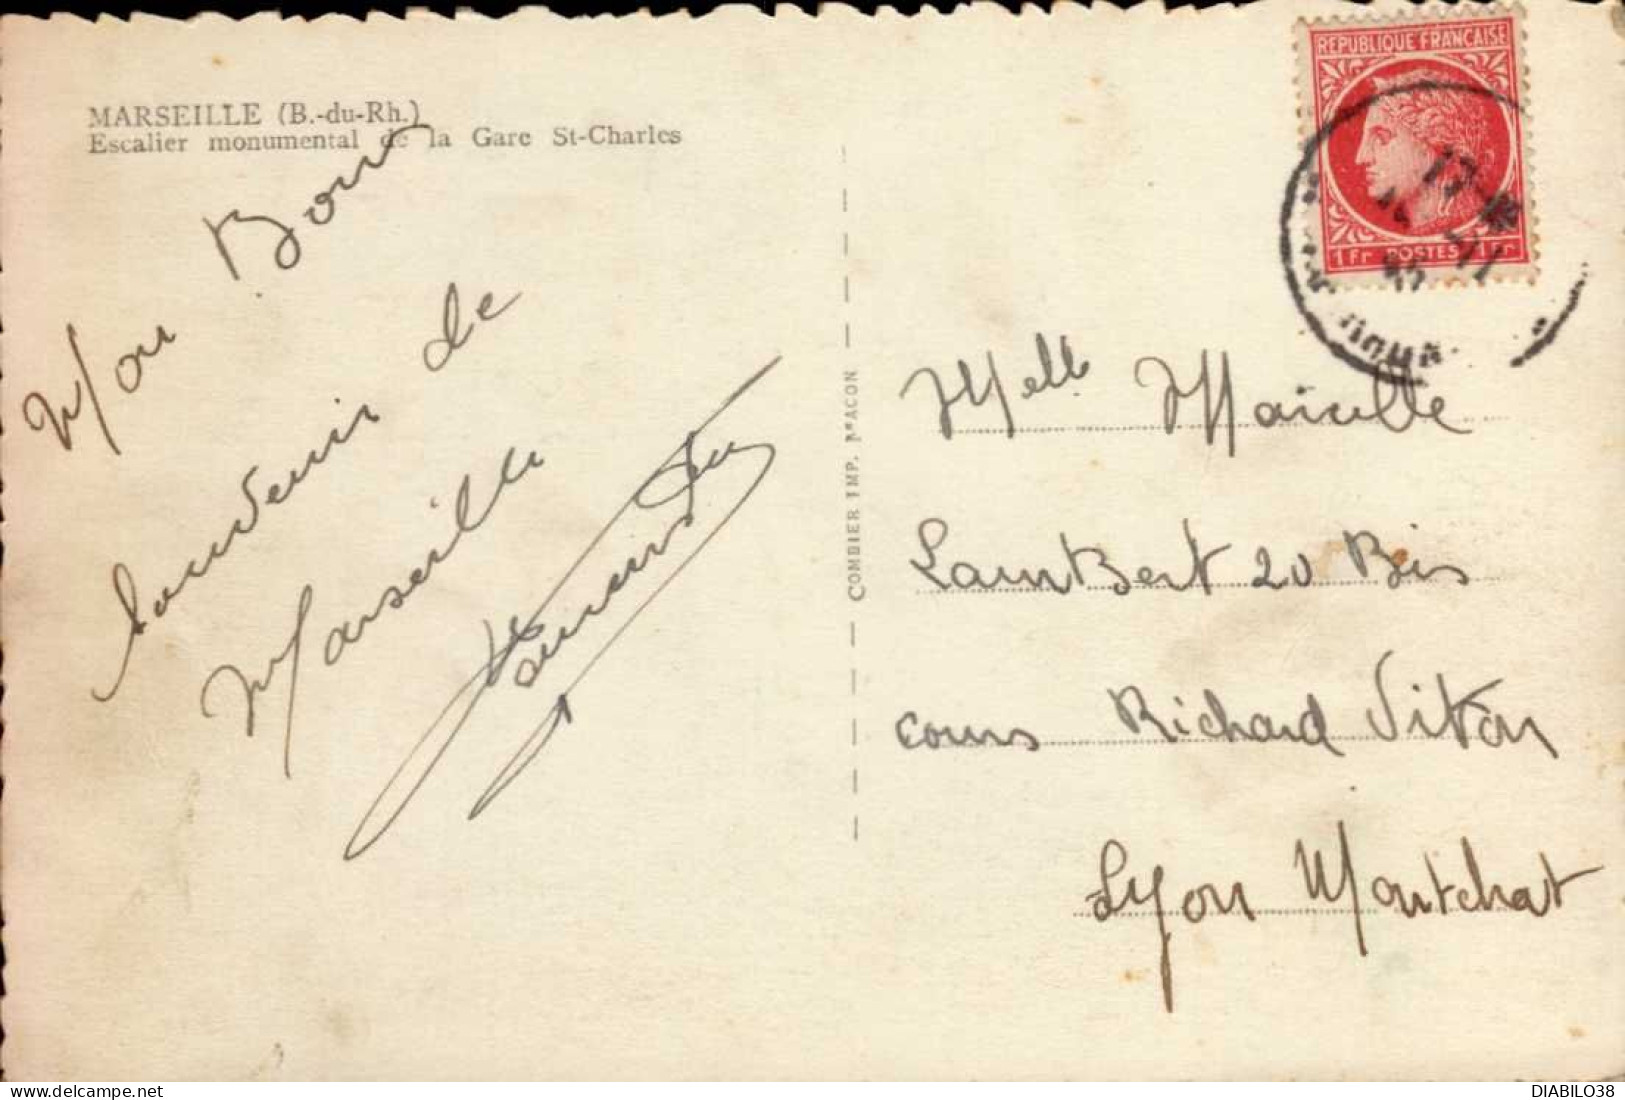 MARSEILLE (B.-du-Rh.)
Escalier monumental de la Gare St-Charles
Mon Bons
Souvenir de
Marseille
COMBIER IMP. MACON
REPUBLIQUE FRANÇAISE
1Fr POSTES 1Fr
Melle Maicelle
Lambert 20 Bis
cours Richard Vitton
Lyon Montchat
DIABILO38